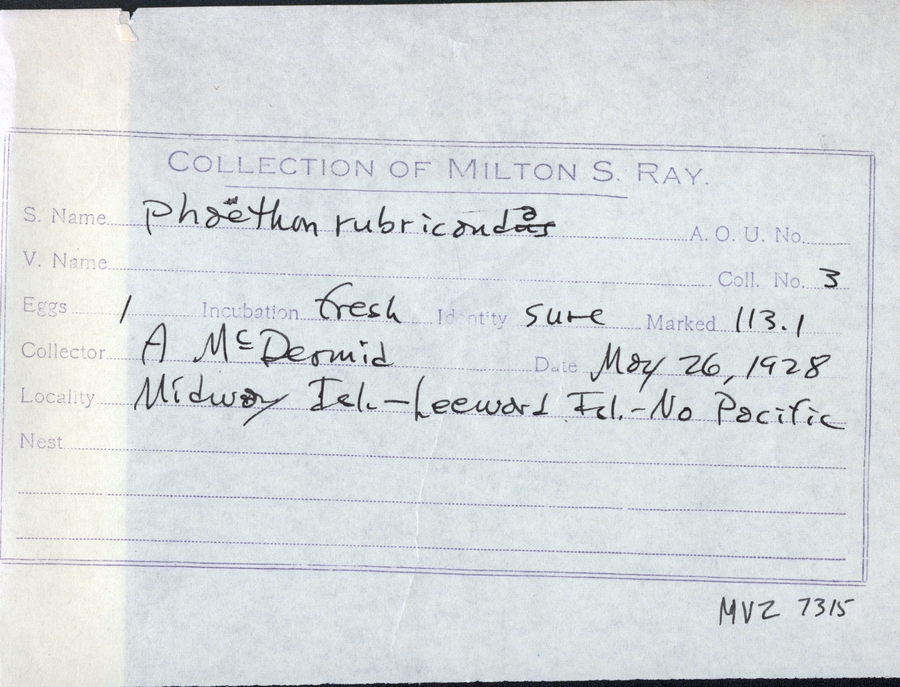 COLLECTION OF MILTON S. RAY.
S. Name Phaëthon rubricauda A. O. U. No.
V. Name Coll. No. 3
Eggs 1 Incubation fresh Identity sure Marked 113.1
Collector A McDermid Date May 26, 1928
Locality Midway Isl.-Leeward Isl.-No Pacific
Nest
MVZ 7315